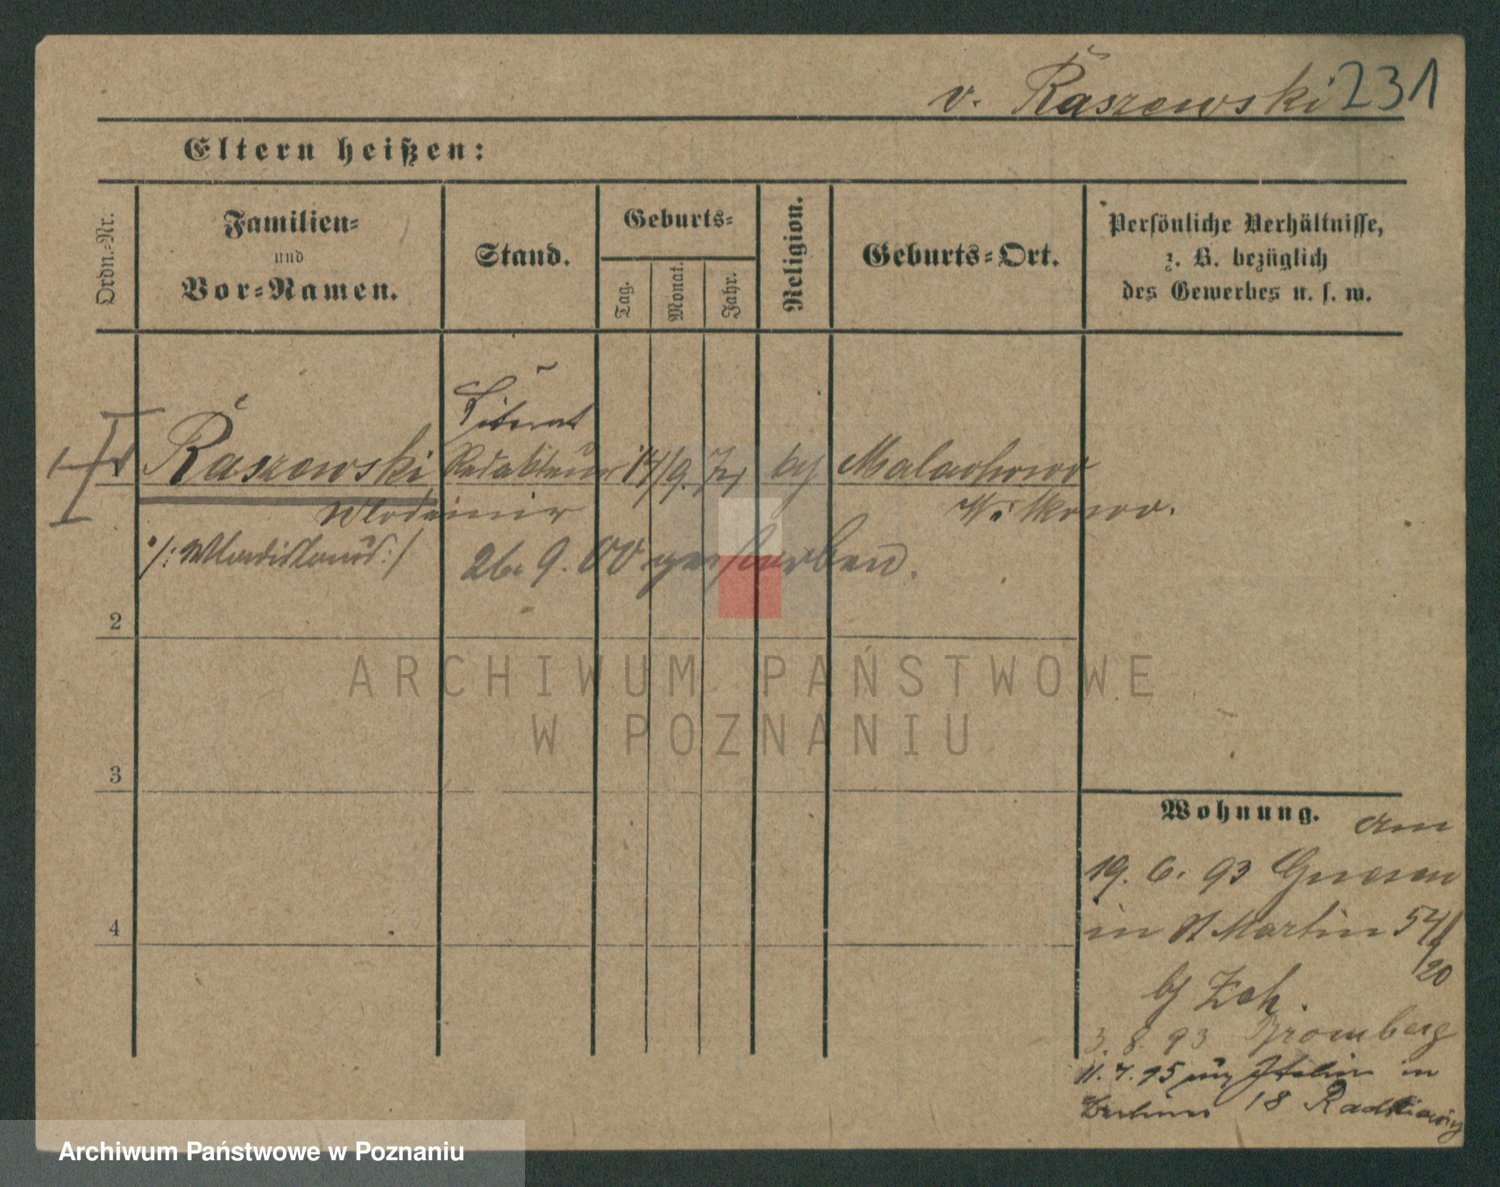 v. Raszewski 231
Eltern heißen:
Ordn.=Nr.
Familien=
und
Vor=Namen.
Stand.
Geburts=
Tag.
Monat.
Jahr.
Religion.
Geburts=Ort.
Persönliche Verhältnisse,
z. B. bezüglich
des Gewerbes u. s. w.
Literat
Raszewski Redakteur 14/9. 71 Malachowo
Wlodimir Witkowo.
/: Wladislaus :/ 26. 9. 00 verstorben.
2
3
4
Wohnung. am
19. 6. 93 Gnesen
in St Martin 54/
20
b/ Zoh.
3. 8. 93 Bromberg
11. 7. 95 Italien in
Berliner 18
ARCHIWUM PAŃSTWOWE
W POZNANIU
Archiwum Państwowe w Poznaniu